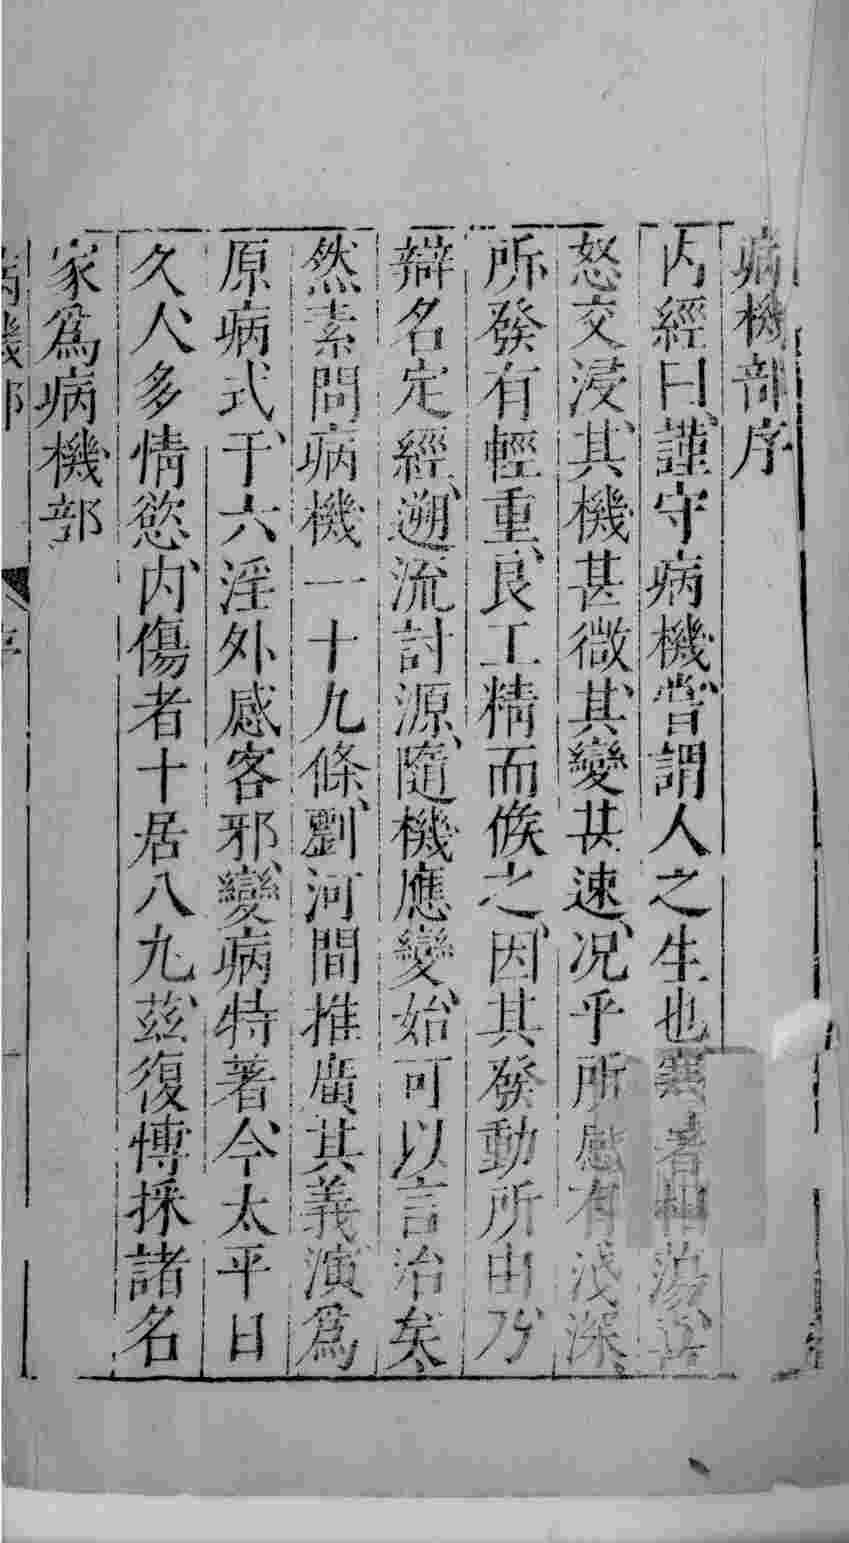 病機部序
內經曰、謹守病機、嘗謂人之生也、寒暑相湯、喜
怒交浸、其機甚微、其變甚速、况乎所感有淺深、
所發有輕重、良工精而候之、因其發動所由、乃
辯名定經、遡流討源、隨機應變、始可以言治矣、
然素問病機一十九條、劉河間推廣其義、演爲
原病式、于六淫外感客邪、變病特著、今太平日
久、人多情慾、內傷者十居八九、茲復博採諸名
家爲病機部、
病機部
序
一